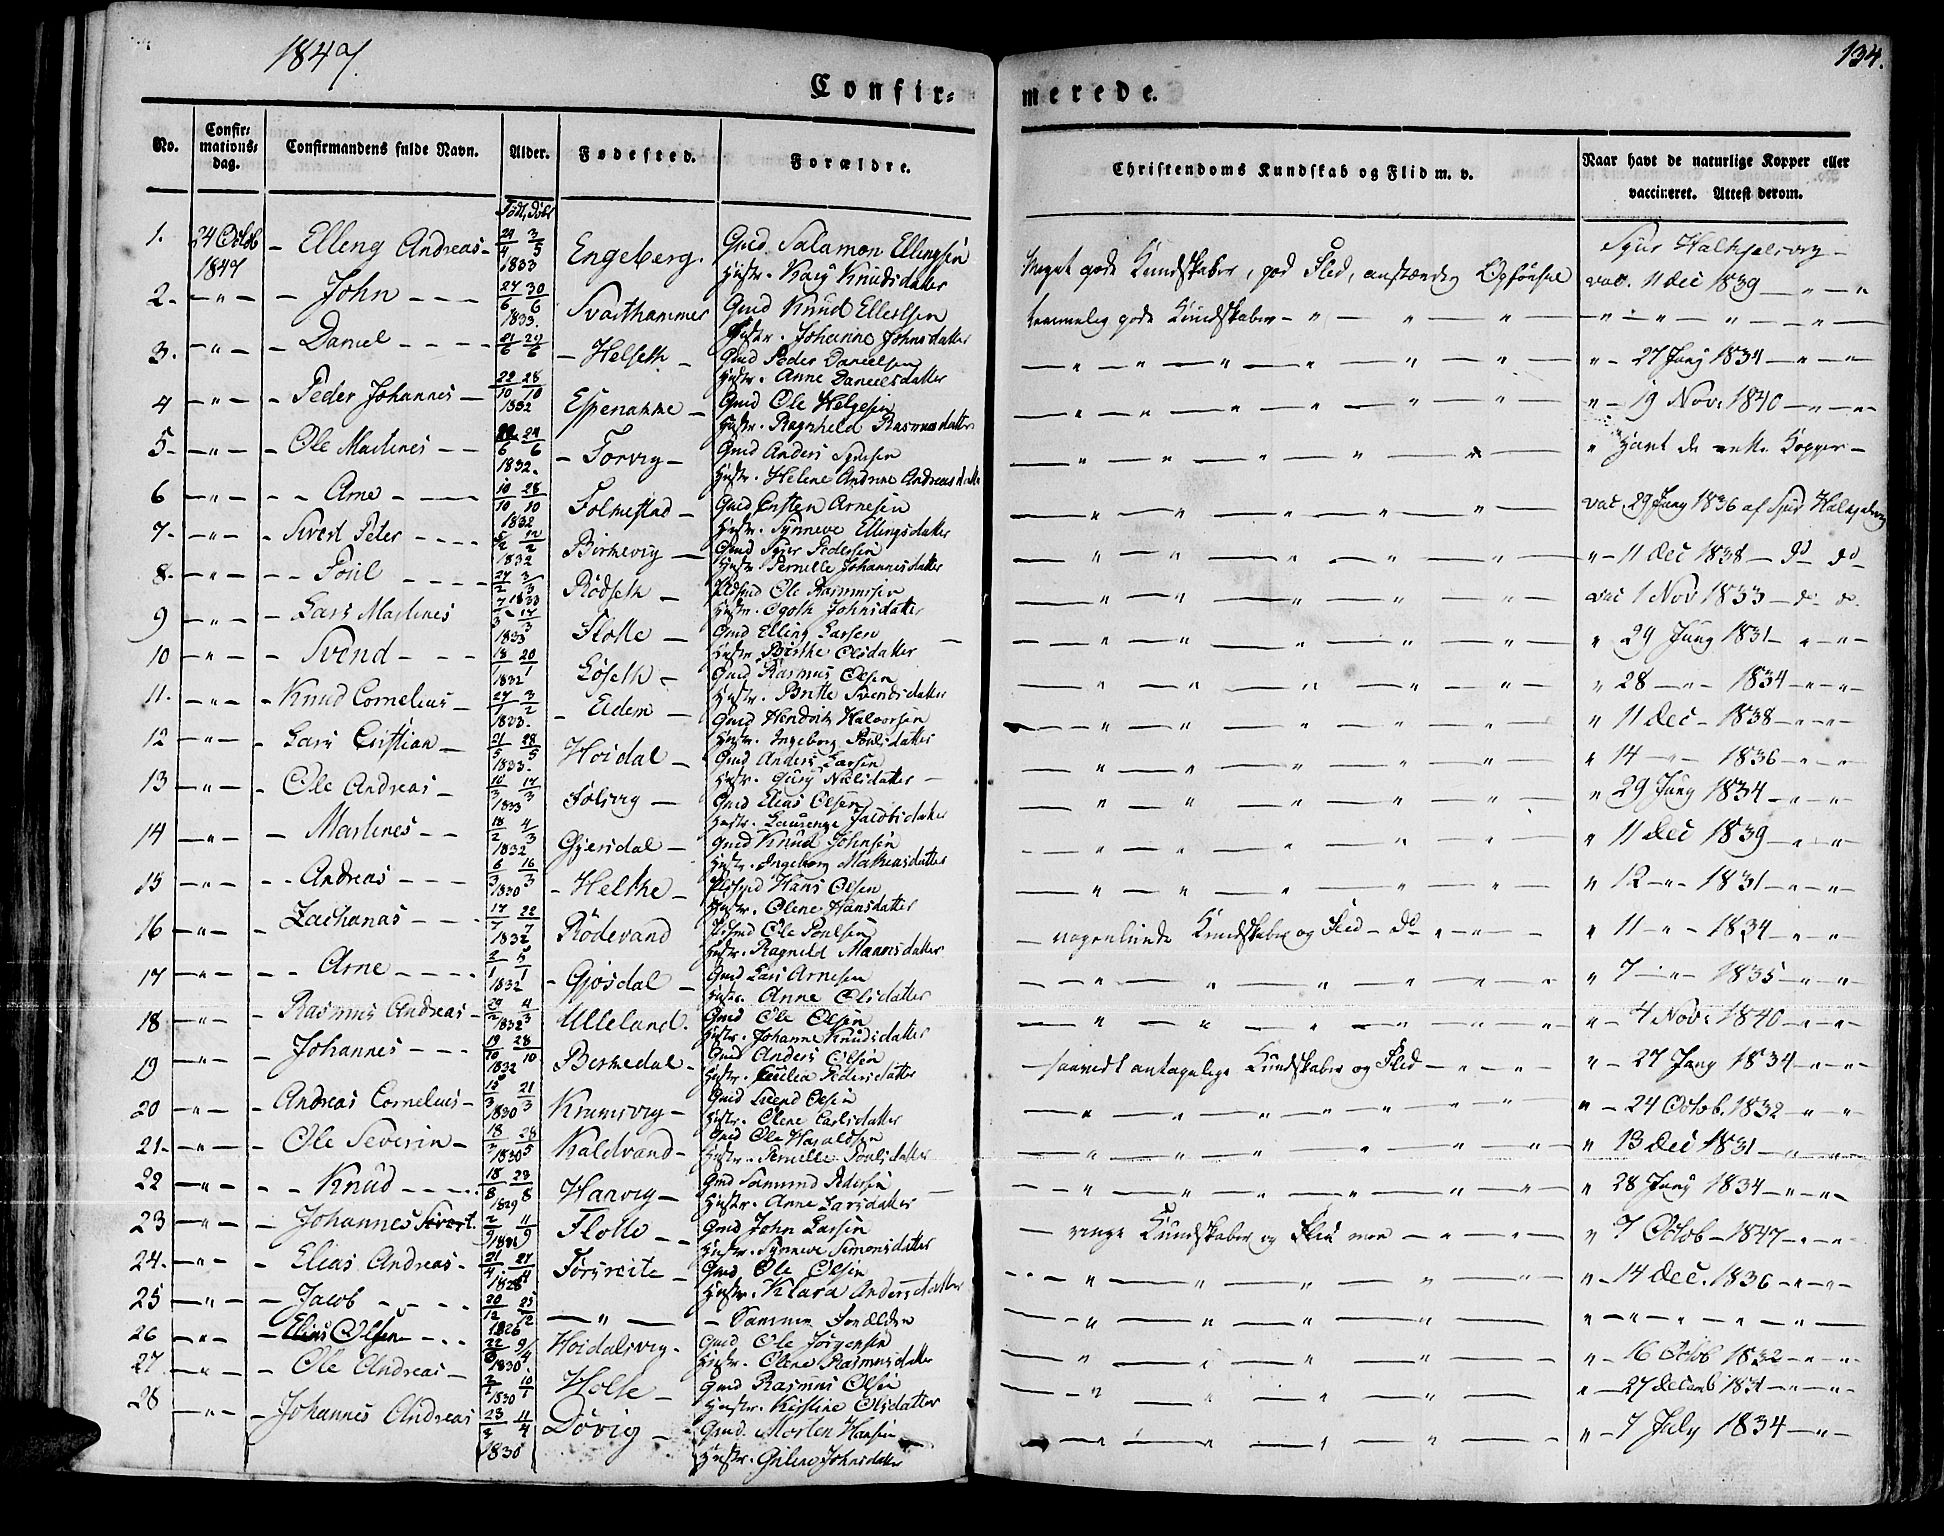 1847.
134.
Confir-
merede.
No.
Confir-
mations-
dag.
Confirmandens fulde Navn.
Alder.
Fødested.
Forældre.
Christendoms Kundskab og Flid m. v.
Naar havt de naturlige Kopper eller
vaccineret. Attest derom.
Født, Døbt
1. 24 Octob 1847 - Elling Andreas - 29/4 3/5 1833 Engeberg. Gmd Salamon Ellingsen
Hustr. Kary Knudsdatter
Meget gode Kundskaber, god Flid, anstændig Opførsel vac. 11 Dec 1839 — " — "
2. — " — - John - - - 24/6 30/6 1833. Svarthammer Gmd Knud
Hustr. Johanne Johnsdatter
temmelig gode Kundskaber - " — " — " —
3. — " — - Daniel - - - - 21/6 29/6 - Helseth - Gmd Peder Danielsen
Hustr. Anne Danielsdatter
" - 27 Juny 1834 — " — " —
4 — " — - Peder Johannes - 22/10 28/10 1832 Gmd Ole Helgesen
Hustr. Ragnheld Rasmusdatter
" - 19 Nov: 1840 — " — " —
5- — " — - Ole Martines - - 24/6 1832. - Torvig - Gmd Anders
Hustr. Helene Andrine
" Havt de Kopper -
6 — " — - - Arne - — 10/10 28/10 1832 Folkestad - Gmd Arnesen
Hustr. Synneve Ellingsdatter
vac. 29 Juny 1836 af
7. — " — - Sivert Peter - - - - 12/2 1832 Birkevig — Gmd Pedersen
Hustr. Pernille Johannesdatter
" - 11 Dec 1838 — do do
8. — " — - - Poul - - - - 3/3 1833 Rødseth - Ole Rasmussen
Hustr. Johnsdatter
vac 1 Nov 1833 — do. do.
9 — " — - Lars Martines 17/3 1833 Flotte - Gmd Elling Larsen
Hustr. Birthe Olsdatter
" 29 Juny 1831 — " — " —
10 — " — - Svend - - - 18/1 20/1 1832 Løseth - Gmd Rasmus Olsen
Hustr. Britte Svendsdatter
" 28 — " — 1834 — " — " —
11. — " — - Knud Cornelius - 27/1 3/2 1833. - Eidem - Gmd Hendrik Halvorsen
Hustr. Ingeborg Poulsdatter
" 11 Dec - 1838 — " — " —
12 — " — - Lars Cristian - 21/5 28/5 1833. Hoidal - Gmd Anders Larsen
Hustr. Gury Nielsdatter
" 14 — " — 1836 — " — " —
13 — " — - Ole Andreas - 10/3 17/3 1833 - Gmd Elias Olsen
Hustr. Jacobsdatter
" 29 Juny 1834 — " — " —
14 — " — - Martines - - 18/2 4/3 1832 Gjersdal - Gmd Knud Johnsen
Hustr. Ingeborg Mathiasdatter
" 11 Dec 1839 — " — " —
15 — " — - - Andreas - - - 6/3 16/3 1830 - Helthe - Hans Olsen
Hustr. Olene Hansdatter
" 12 — " — 1831 — " — " —
16 — " — - Zacharias - - - 17/7 22/7 1832 Rødevand Ole Poulsen
Hustr. Ragnild
— nogenlunde Kundskaber og Flid - do " - " - " 11 — " — 1834 — " — " —
17 — " — - - Arne - - - - 2/1 5/1 1832 - Gjøsdal - Gmd Lars Arnesen
Hustr. Anne Olsdatter
" 7 — " — 1835 — " — " —
18. — " — - Rasmus Andreas - 29/2 4/3 1832 Ulleland. Gmd Ole Olsen
Hustr. Johanne Knudsdatter
" - 4 Nov: 1840 — " — " —
19 — " — - Johannes - - - 19/10 28/10 1832 Birkedal - Gmd Anders Olsen
Hustr. Cecilia Pedersdatter
— saavidt antagelige Kundskaber og Flid — " — " — " - 27 Juny 1834 — " — " —
20 — " — - Andreas Cornelius - 15/3 21/3 1830 Krumsvig - Gmd Svend Olsen
Hustr. Olene Carlsdatter
" - 24 Octob. 1832 — " — " —
21. — " — - Ole Severin - 18/3 28/5 1830 Kaldvand - Gmd Ole Haraldsen
Hustr. Pernille Poulsdatter
" 13 Dec 1831 — " — " —
22 — " — - - Knud - - - - 18/8 23/8 1829 Harvig - Gmd Samund Pedersen
Hustr. Anne Larsdatter
" 28 Juny 1834 — " — " —
23 — " — - Johannes Sivert. 2/9 11/9 Flotte - - Gmd John Larsen
Hustr. Synneve Simonsdatter
— ringe Kundskaber og Flid men — " — " — " 7 Octob - 1847 — " — " —
24. — " — - Elias Andreas - 21/4 27/4 1828 - Gmd Ole Olsen
Hustr. Klara Andersdatter
" - 14 Dec. 1836 — " — " —
25 — " — - Jacob - - - - 20/12 25/12 1826 — " — - Samme Forældre
26 — " — - Elias Olsen - - - 22 9/4 1830 Hoidalsvig. Gmd Ole Jørgensen
Hustr. Olene Rasmusdatter
" - 16 Octob 1832 — " — " —
27. — " — - Ole Andreas - 2/1 10/1 1830 Holte - Gmd Rasmus Olsen
Hustr. Kirstine Olsdatter
" - 27 Decemb 1831 — " — " —
28 — " — - Johannes Andreas 23/3 11/4 1830 Døvig - Gmd. Morten Hansen
Hustr. Johnsdatter
" - 7 July 1834 — " —